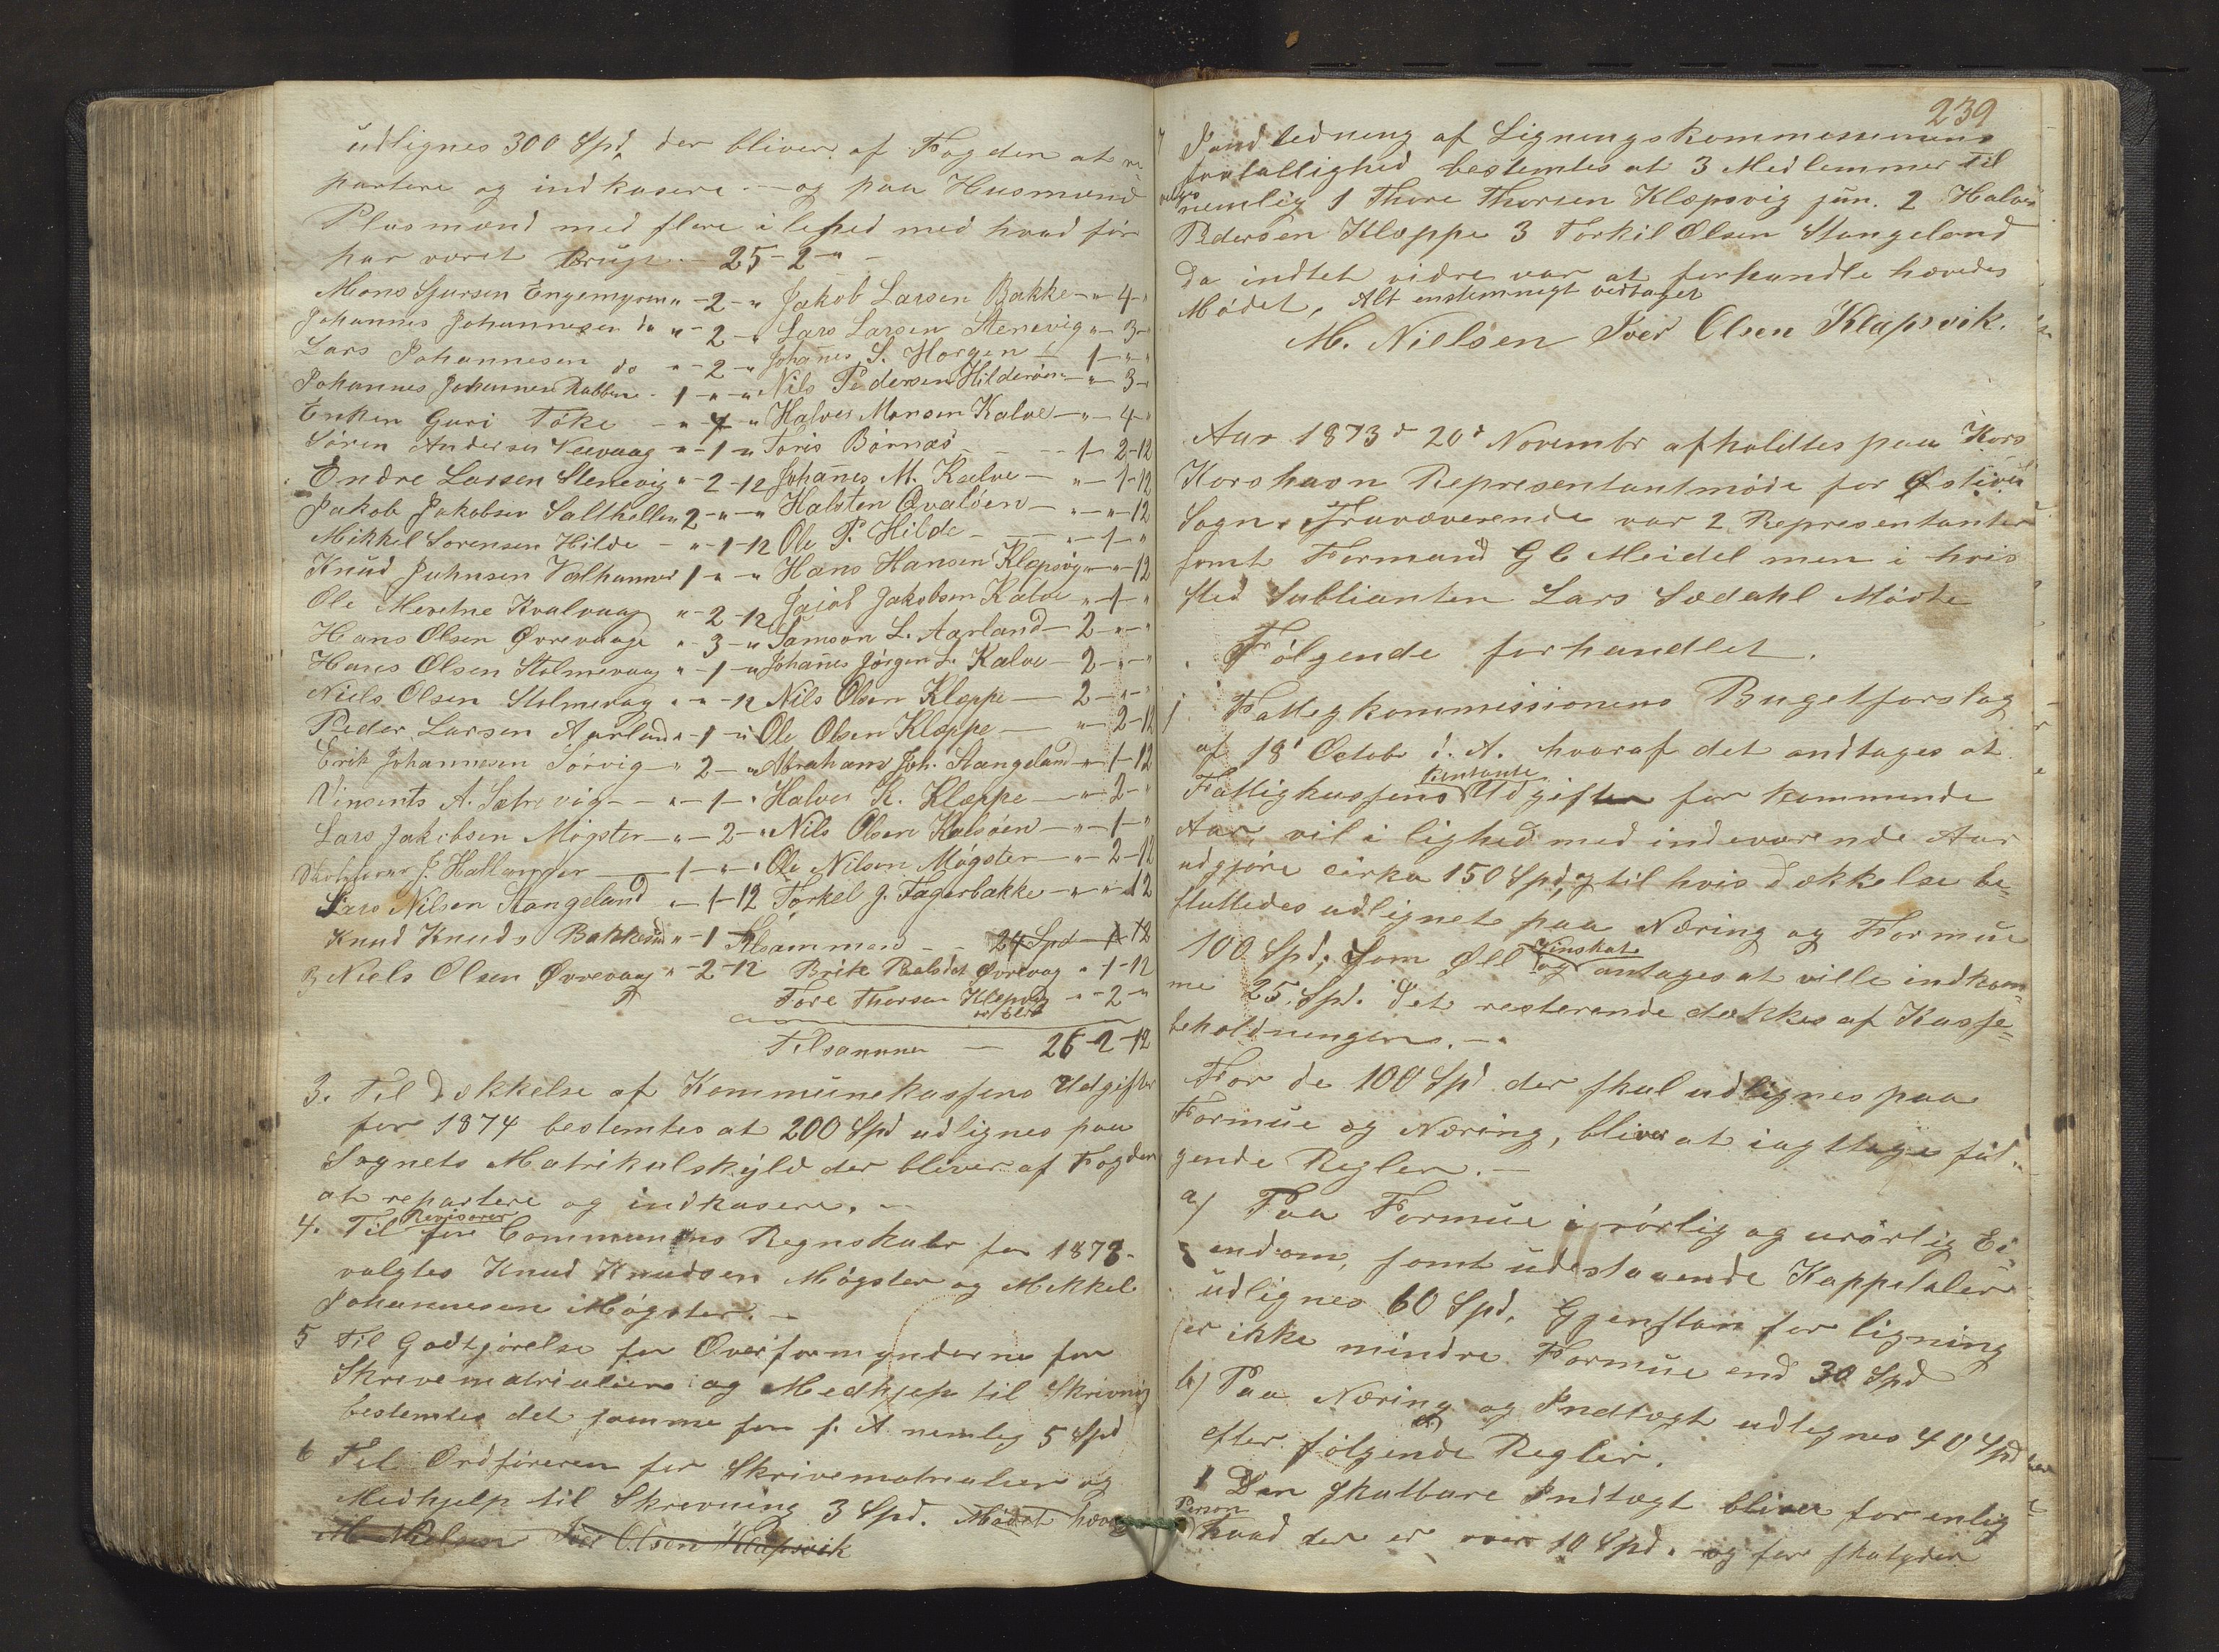 udlignes 300 Spd, der bliver af Fogden at re
partere og indkasere. — og paa Husmænd
Plasmænd med flere i lehed med hvad før
har været Brugt. 25-2-"-
Mons Sjursen Engemyren " - 2 - "
Johannes Johannesen do " - 2 - "
Lars Johannesen do " - 2 - "
Johannes Johannesen Rabben - 1 - " - "
Enken Guri Töke - " - 4 - "
Sören Andersen Veevaag " - 1 - "
Endre Larsen Stenevig " - 2 - 12
Jakob Jakobsen Salthellen 2 - " - "
Mikkel Sorensen Hilde - " - 1 - 12
Knud Juhnsen Valhammer 1 - " - "
Ole Kvalvaag " - 2 - 12
Hans Olsen Øvrevaage " - 3 - "
Hans Olsen Stolmevaag " - 1 - "
Niels Olsen Stolmevag " - " - 12
Peder Larsen Aarland " - 1 - "
Erik Johannesen Sørvig - " 2 - "
Vinsents A. Sætrevig - - " - 1 - "
Lars Jakobsen Møgster - " - 2 - "
J. Hallanger - 1 - " - "
Lars Nilsen Stangeland " - 1 - 12
Knud Knuds Bakkesun " - 1 -
Niels Olsen Øvrevaag " - 2 - 12
Jakob Larsen Bakke - " 4 - "
Lars Larsen Stenevig " - 3 - "
Johanes S. Horgen - 1 - " - "
Nils Pedersen Hilderöen - " - 3 - "
Halver Monsen Kalve - " - 4 - "
Toris Börnæs - - - 1 - 2 - 12
Johanes M. Kalve - " - 1 - 12
Halsten Qvalöen - " - " - 12
Ole P. Hilde - - " - 1 - "
Hans Hansen Klepsvig " - " - 12
Jacob Jakobsen Kalve " - 1 - "
Samson L. Aarland - 2 - " - "
Johanes Jörgen L. Kalve - 2 - " - "
Nils Olsen Kleppe - 2 - " - "
Ole Olsen Kleppe - " - 2 - 12
Abraham Joh. Stangeland - " - 1 - 12
Halver K. Kleppe - " - 2 - "
Nils Olsen Kalsöen - " - 1 - "
Ole Nilsen Mógster - " - 2 - 12
Torkel J. Fagerbakke - " - " - 12
Tilsammen - - 24 Spd - 1 - 12
Brite Øvrevag " - 1 - 12
Tore Thorsen Klepsvig " - 2 - "
Tilsammen - 26-2-12
3. Til Dækkelse af Kommunekassens Udgifter
for 1874 bestemtes at 200 Spd udlignes paa
Sognets Matrikulskyld der bliver af Fogden
at repartere og indkasere. —
Revisorer
4. Til for Communens Regnskaber for 1873.
valgtes Knud Knudsen Møgster og Mikkel
Johannesen Møgster. —
5 Til Godtgjørelse for Overformynderne for
Skrivematrialier og Medhjelp til Skrivning
bestemtes det samme for f. A nemleg 5 Spd
6 Til Ordføreren for Skrivematrialier og
Medhjelp til Skrevning 3 Spd. Mødet hæve
M. Nielsen Iver Olsen Klapsvik
239
7 Lignengskommessionens
fortallighed bestemtes at 3 Medlemmer til
vælges nemlig 1 Thore Thorsen Klepsvig jun. 2 Halver
Pedersen Kleppe 3 Torkil Olsen Stangeland
Da indtet vidre var at forhandle hævedes
Mødet, Alt enstemmegt vedtaget
M. Nielsen Iver Olsen Klapsvik.
Aar 1873 d 20d Novembr afholdtes paa Kors
Korshavn Representantmøde for Østevol
Sogn. Fraværende var 2 Representanter
samt Formand G C Meidel men i hvis
sted Sublianten Lars Sædahl Mødte
Følgende forhandlet.
1. Fattegkommissionens Bugetforslag
af 18d Octobr d. A. hvoraf det andtages at
kontante
Fattigkassens Udgifter for kommende
Aar vil i lighed med indeværende Aar
udgjøre cirka 150 Spd, og til hvis Dækkelse be=
sluttedes udlignet paa Næring og Formue
100 Spd; Som Øll og Vinskat antages at ville indkom=
me 25 Spd. Det resterende dækkes af Kasse=
beholdningen. —
For de 100 Spd der skal udlignes paa
Formue og Næring, bliver at iagttage føl=
gende Regler. —
a) Paa Formue i rørlig og urørlig Ei
endom, samt udestaaende Kappetaler
udlignes 60 Spd, Gjenstan for ligning
er ikke mindre Formue end 30 Spd
b) Paa Næring og Indtægt udlegnes 40 Spd
efter følgende Regler.
1 Den skatbare Indtægt bliver for enlig
Person
hvad der er over 10 Spd. og for skatyder